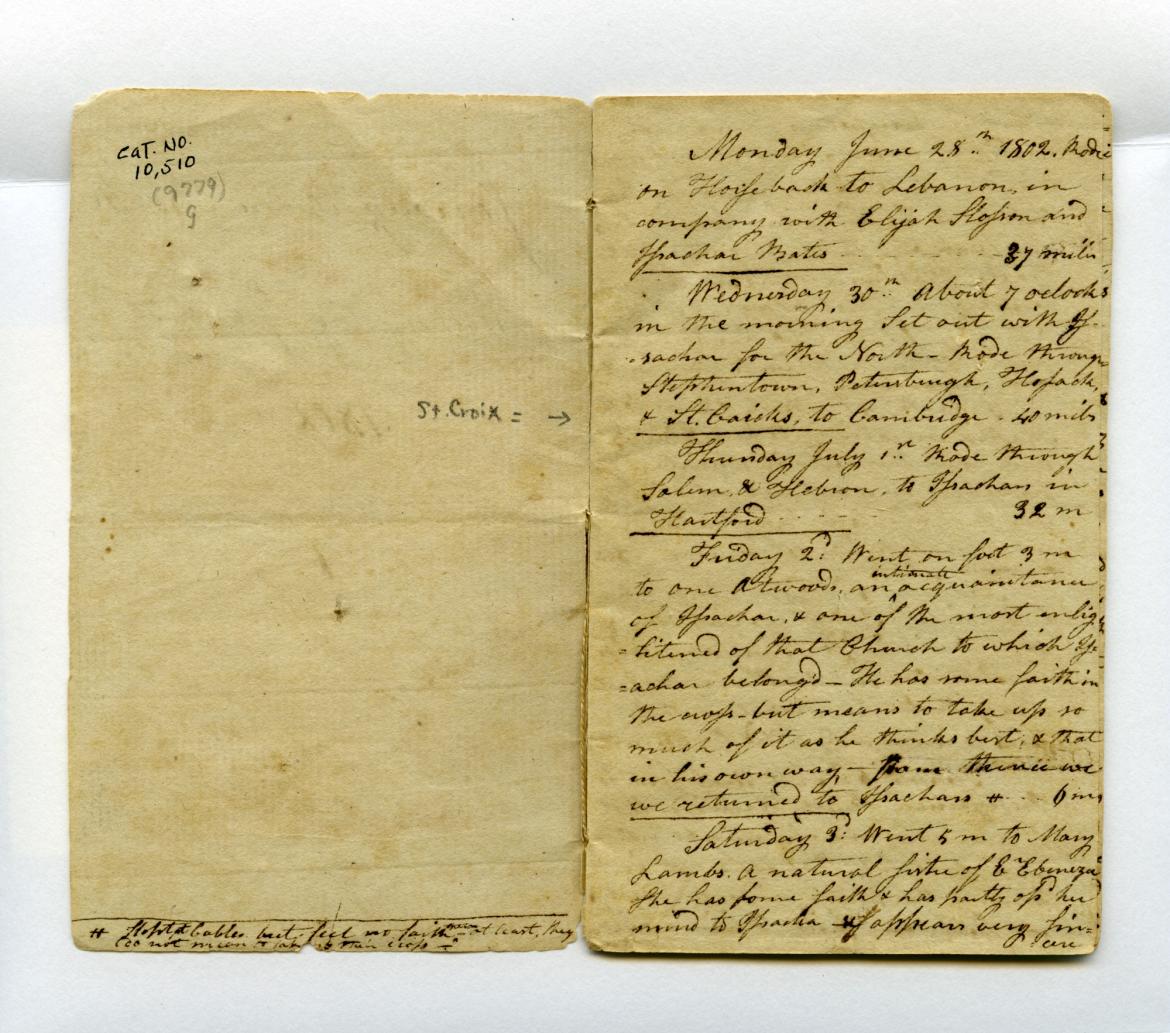 CAT. NO.
10,510
(9779)
9
St. Croix = →
# at Cobbles but feel no faith at least, they
do not mean to take up their cross
Monday June 28th 1802. Rode
on Horseback to Lebanon, in
company with Elijah Slosson and
Issachar Bates 37 miles
Wednesday 30th About 7 oclock
in the morning Set out with Is-
-sachar for the North - Rode through
Stephentown, Petersburgh, Hosack,
& St. Caicks, to Cambridge - 40 miles
Thursday July 1st Rode through
Salem, & Hebron, to Issachars in
Hartford 32 m
Friday 2d Went on foot 3 m
to one Atwoods, an intimate acquaintance
of Issachar, & one of the most enlig
=htened of that Church to which Iss=
=achar belongd - He has some faith in
the cross - but means to take up so
much of it as he thinks best, & that
in his own way - from thence we
we returned to Issachars # 6 m
Saturday 3d Went 5 m to Mary
Lambs. a natural sister of E Ebenezer
She has some faith & has partly opd her
mind to Issachar & appears very sin=
cere